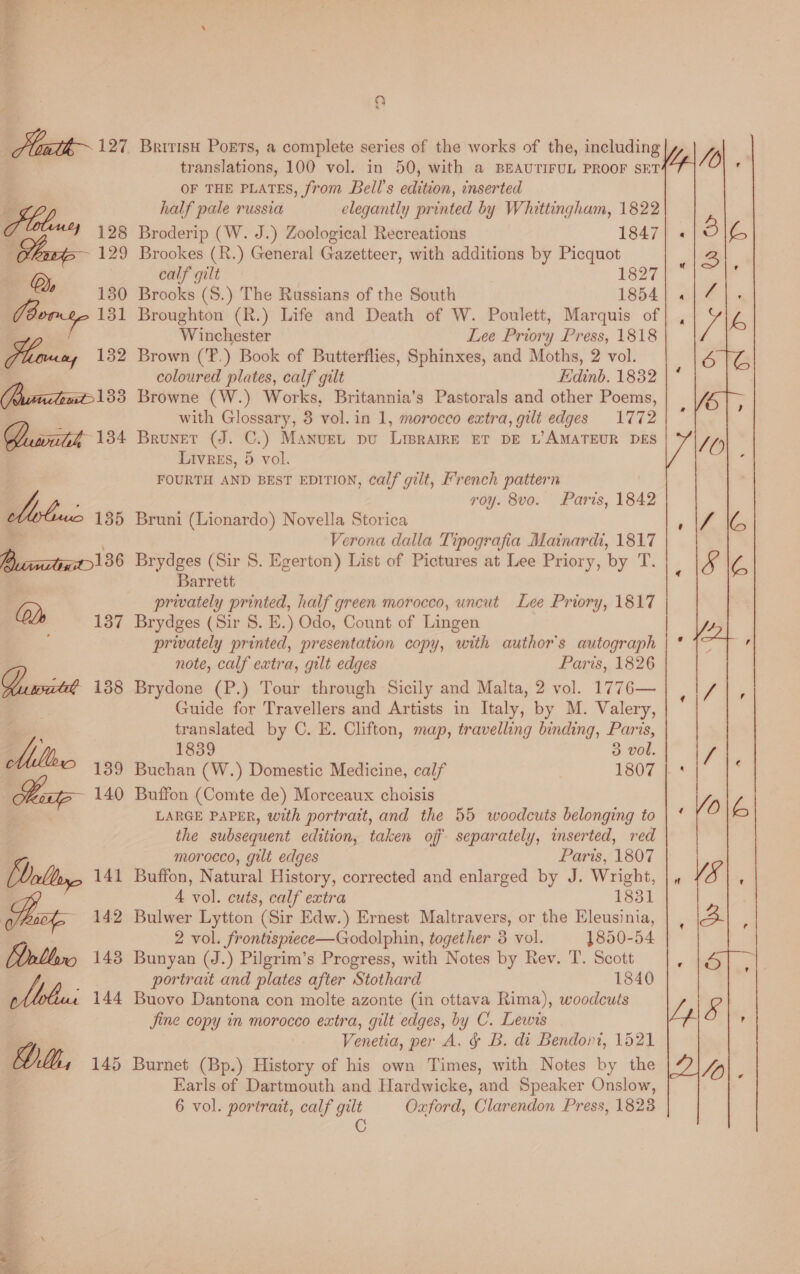 9
Heath 127 British Poets, a complete series of the works of the, including
translations, 100 vol. in 50, with a BEAUTIFUL PROOF SET
OF THE PLATES, from Bell's edition, inserted
half pale russia elegantly printed by Whittingham, 1822
128 Broderip (W. J.) Zoological Recreations 1847 . 3 6
129 Brookes (R.) General Gazetteer, with additions by Picquot
calf gilt 1827 " 3 .
130 Brooks (S.) The Russians of the South 1854 . 1 .
131 Broughton (R.) Life and Death of W. Poulett, Marquis of
Winchester Lee Priory Press, 1818
132 Brown (T.) Book of Butterflies, Sphinxes, and Moths, 2 vol.
coloured plates, calf gilt Edinb. 1832
133 Browne (W.) Works, Britannia's Pastorals and other Poems,
with Glossary, 3 vol. in 1, morocco extra, gilt edges 1772
Quaritch 134 Brunet (J. C.) Manuel du Libraire et de l'Amateur des
Livres, 5 vol. 7 10 .
FOURTH AND BEST EDITION, calf gilt, French pattern
roy. 8vo. Paris, 1842
Molini 135 Bruni (Lionardo) Novella Storica
Verona dalla Tipografia Mainardi, 1817 . 1 6
136 Brydges (Sir S. Egerton) List of Pictures at Lee Priory, by T.
Barrett . 8 6
privately printed, half green morocco, uncut Lee Priory, 1817
Do 137 Brydges (Sir S. E.) Odo, Count of Lingen
privately printed, presentation copy, with author's autograph
note, calf extra, gilt edges Paris, 1826
Quaritch 138 Brydone (P.) Tour through Sicily and Malta, 2 vol. 1776—
Guide for Travellers and Artists in Italy, by M. Valery,
translated by C. E. Clifton, map, travelling binding, Paris,
1839 3 vol.
Miller 139 Buchan (W.) Domestic Medicine, calf 1807 . 1 .
140 Buffon (Comte de) Morceaux choisis
LARGE PAPER, with portrait, and the 55 woodcuts belonging to . 10 6
the subsequent edition, taken off separately, inserted, red
morocco, gilt edges Paris, 1807
141 Buffon, Natural History, corrected and enlarged by J. Wright, " 18 .
4 vol. cuts, calf extra 1831
142 Bulwer Lytton (Sir Edw.) Ernest Maltravers, or the Eleusinia,
2 vol. frontispiece—Godolphin, together 3 vol. 1850-54
143 Bunyan (J.) Pilgrim's Progress, with Notes by Rev. T. Scott
portrait and plates after Stothard 1840
Molini 144 Buovo Dantona con molte azonte (in ottava Rima), woodcuts
fine copy in morocco extra, gilt edges, by C. Lewis 4 8 .
Venetia, per A. & B. di Bendoni, 1521
Willis 145 Burnet (Bp.) History of his own Times, with Notes by the 2 10 .
Earls of Dartmouth and Hardwicke, and Speaker Onslow,
6 vol. portrait, calf gilt Oxford, Clarendon Press, 1823
C